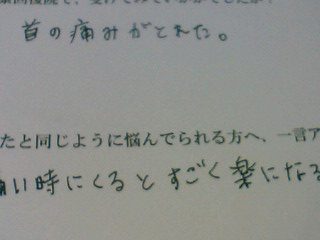 首の痛みがとれた。
たと同じように悩んでられる方へ、一言ア
痛い時にくるとすごく楽になる